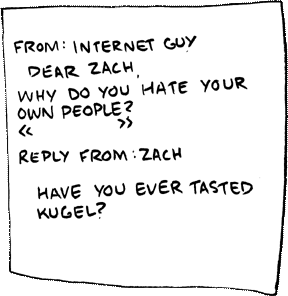 FROM: INTERNET GUY
DEAR ZACH,
WHY DO YOU HATE YOUR
OWN PEOPLE?
<< >>
REPLY FROM: ZACH
HAVE YOU EVER TASTED
KUGEL?